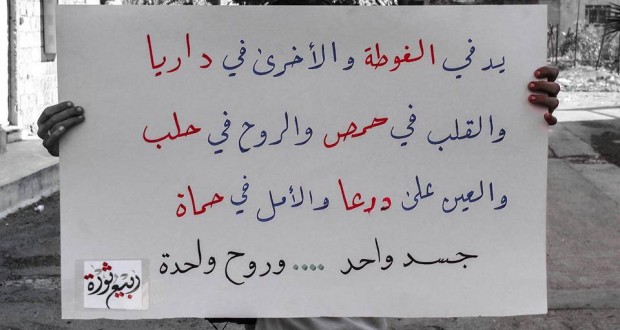 يد في الغوطة والأخرى في داريا
والقلب في حمص والروح في حلب
والعين على درعا والأمل في حماة
جسد واحد .... وروح واحدة
ربيع ثورة